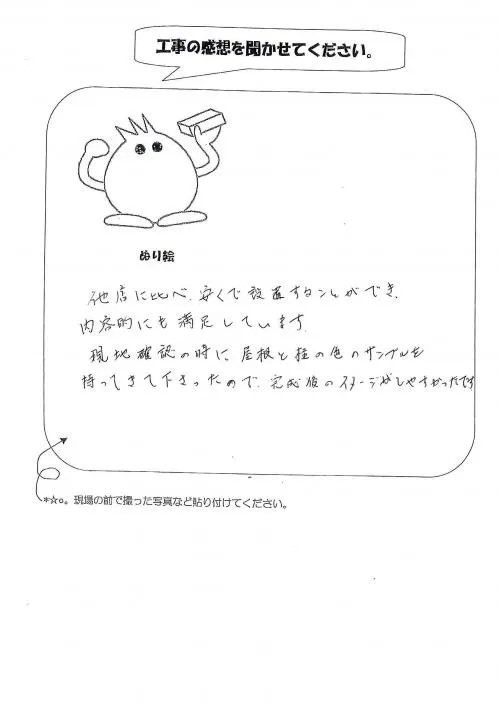 工事の感想を聞かせてください。
ぬり絵
他店に比べ、安くで設置することができ、
内容的にも満足しています。
現地確認の時に、屋根と柱の色のサンプルを
持ってきて下さったので、完成後のイメージがしやすかったです
*☆o。現場の前で撮った写真など貼り付けてください。